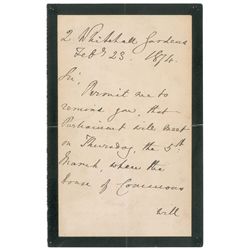 2 Whitehall Gardens
Feby 23. 1874.
Sir,
Permit me to
remind you, that
Parliament will meet
on Thursday, the 5th
March, when the
House of Commons
will